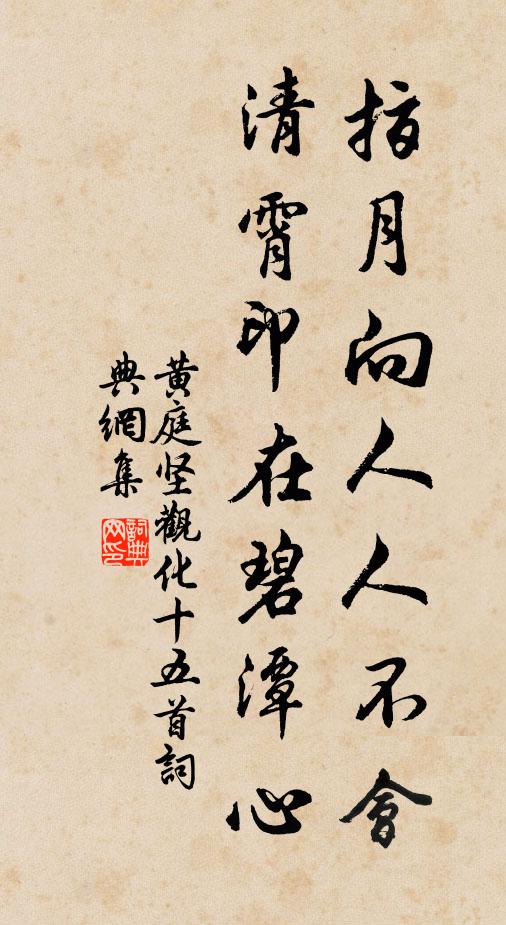 指月向人人不會
清霄印在碧潭心
黃庭坚觀化十五首詞
典網集
詞典網印